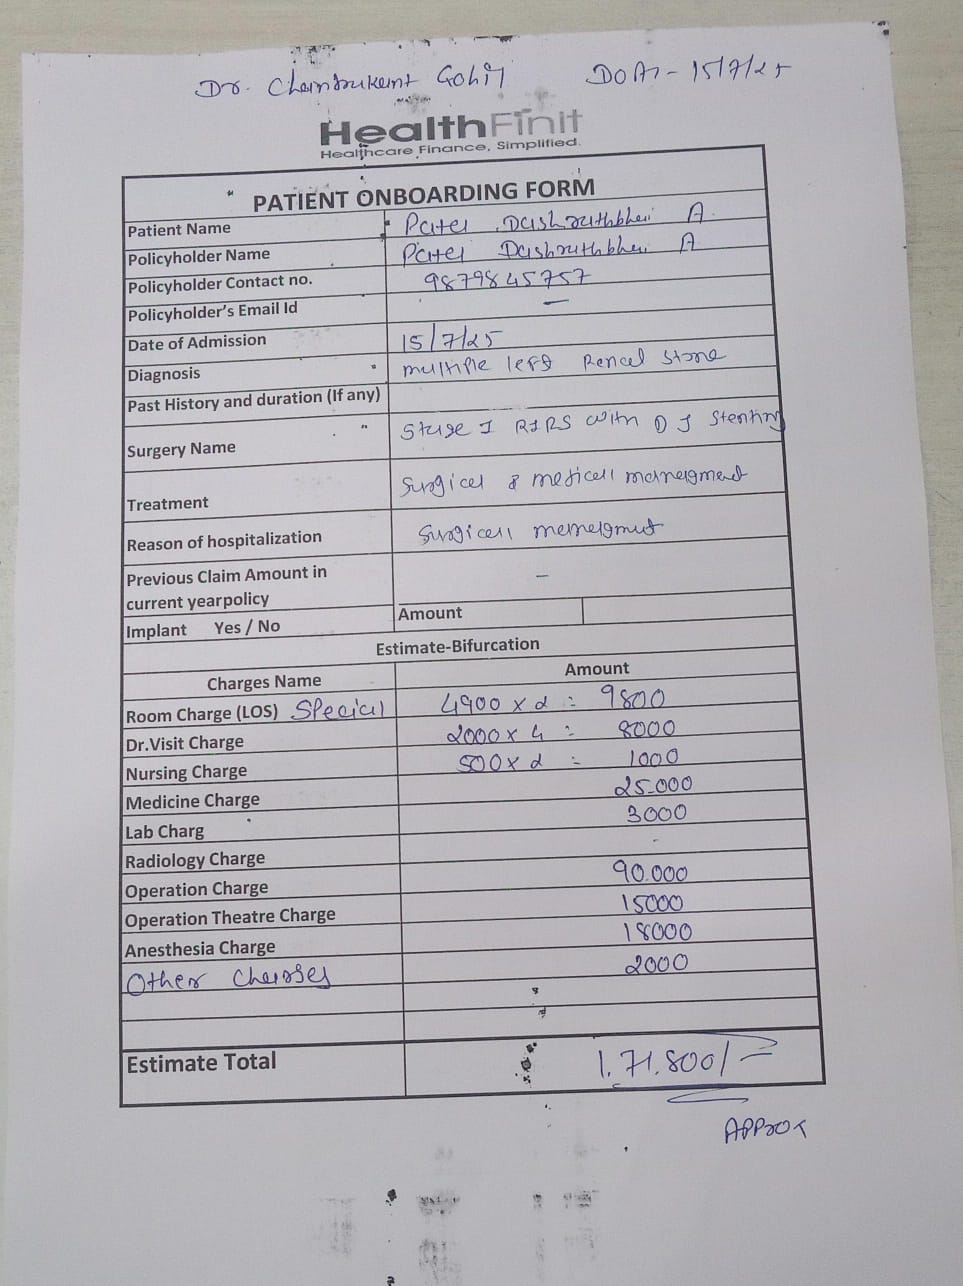 Dr. Chandrakant Gohil DOA - 15/7/25
HealthFinit
Healthcare Finance, Simplified.
PATIENT ONBOARDING FORM
Patient Name Patel Dashrathbhai A.
Policyholder Name Patel Dashrathbhai A
Policyholder Contact no. 9879845757
Policyholder's Email Id —
Date of Admission 15/7/25
Diagnosis multiple left Renal stone
Past History and duration (If any)
Surgery Name Stage I RIRS with D J Stenting
Treatment Surgical & medical manegment
Reason of hospitalization Surgical manegmnt
Previous Claim Amount in —
current yearpolicy
Implant Yes / No Amount
Estimate-Bifurcation
Charges Name Amount
Room Charge (LOS) Special 4900 x 2 = 9800
Dr.Visit Charge 2000 x 4 = 8000
Nursing Charge 500 x 2 = 1000
Medicine Charge 25.000
Lab Charg 3000
Radiology Charge -
Operation Charge 90.000
Operation Theatre Charge 15000
Anesthesia Charge 18000
Other Charges 2000
Estimate Total 1.71.800/-
Approx